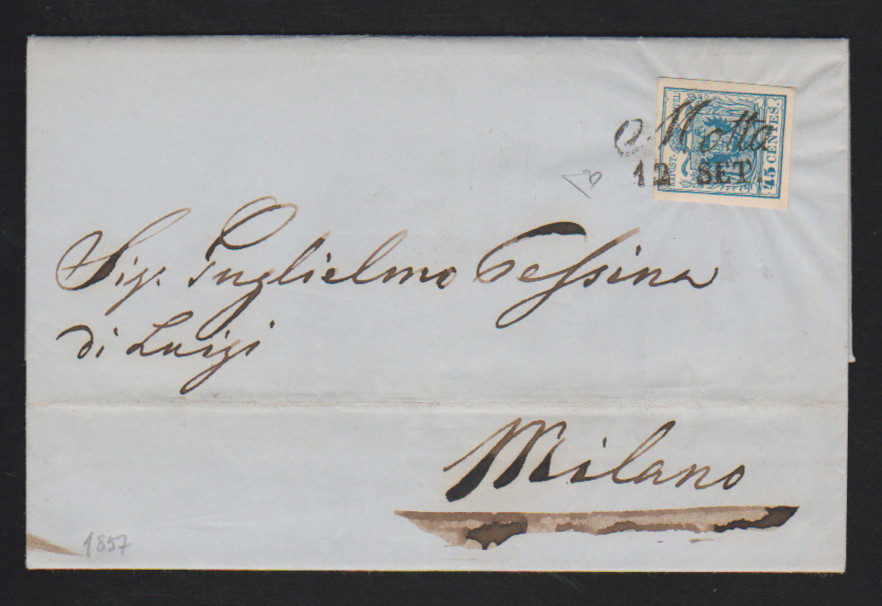 Motta
12 SET.
45 CENTES.
Sigr. Guglielmo Tessina
di Luigi
Milano
1857